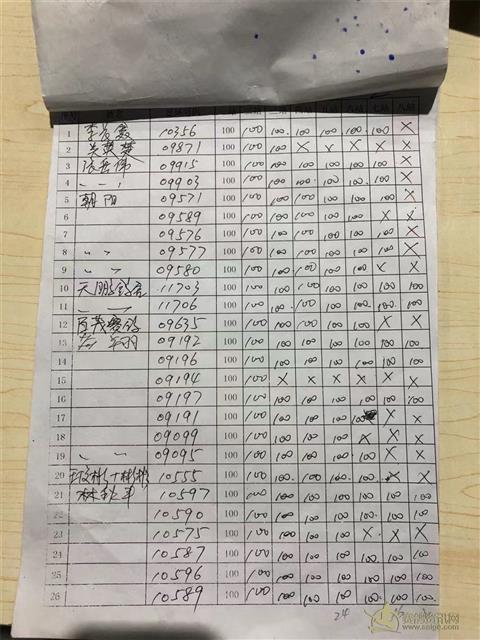 七站 八站
1 10356 100 100 100 100 100 100 100 ×
2 09871 100 100 100 × × × × ×
3 张岳伟 09915 100 100 100 100 100 100 100 ×
4 〃 〃 09903 100 100 100 100 100 100 100 ×
5 朝阳 09571 100 100 100 100 100 100 100 ×
6 09589 100 100 100 100 100 100 × ×
7 09576 100 100 100 100 100 100 100 ×
8 〃 〃 09577 100 100 100 100 100 100 100 ×
9 〃 〃 09580 100 100 100 100 100 100 × ×
10 天鹏鸽舍 11703 100 100 100 100 100 100 100 100
11 〃 11706 100 100 100 100 100 100 100 100
12 百茂赛鸽 09635 100 100 100 100 100 100 × ×
13 09192 100 100 100 100 100 100 100 100
14 09196 100 100 100 100 100 100 100 100
15 09194 100 100 × × × × × ×
16 09197 100 100 100 100 100 100 100 100
17 09191 100 100 100 100 100 100 × ×
18 09099 100 100 100 100 100 100 × ×
19 〃 〃 09095 100 100 100 100 100 100 × ×
20 10555 100 100 100 100 100 100 × ×
21 林 10597 100 100 100 100 100 100 100 100
22 10590 100 100 100 100 100 100 100 100
23 10575 100 100 100 100 100 × × ×
24 10587 100 100 100 100 100 100 100 100
25 10596 100 100 100 100 100 100 100 100
26 10589 100 100 100 100 100 100 100 100
24
www.saige.com